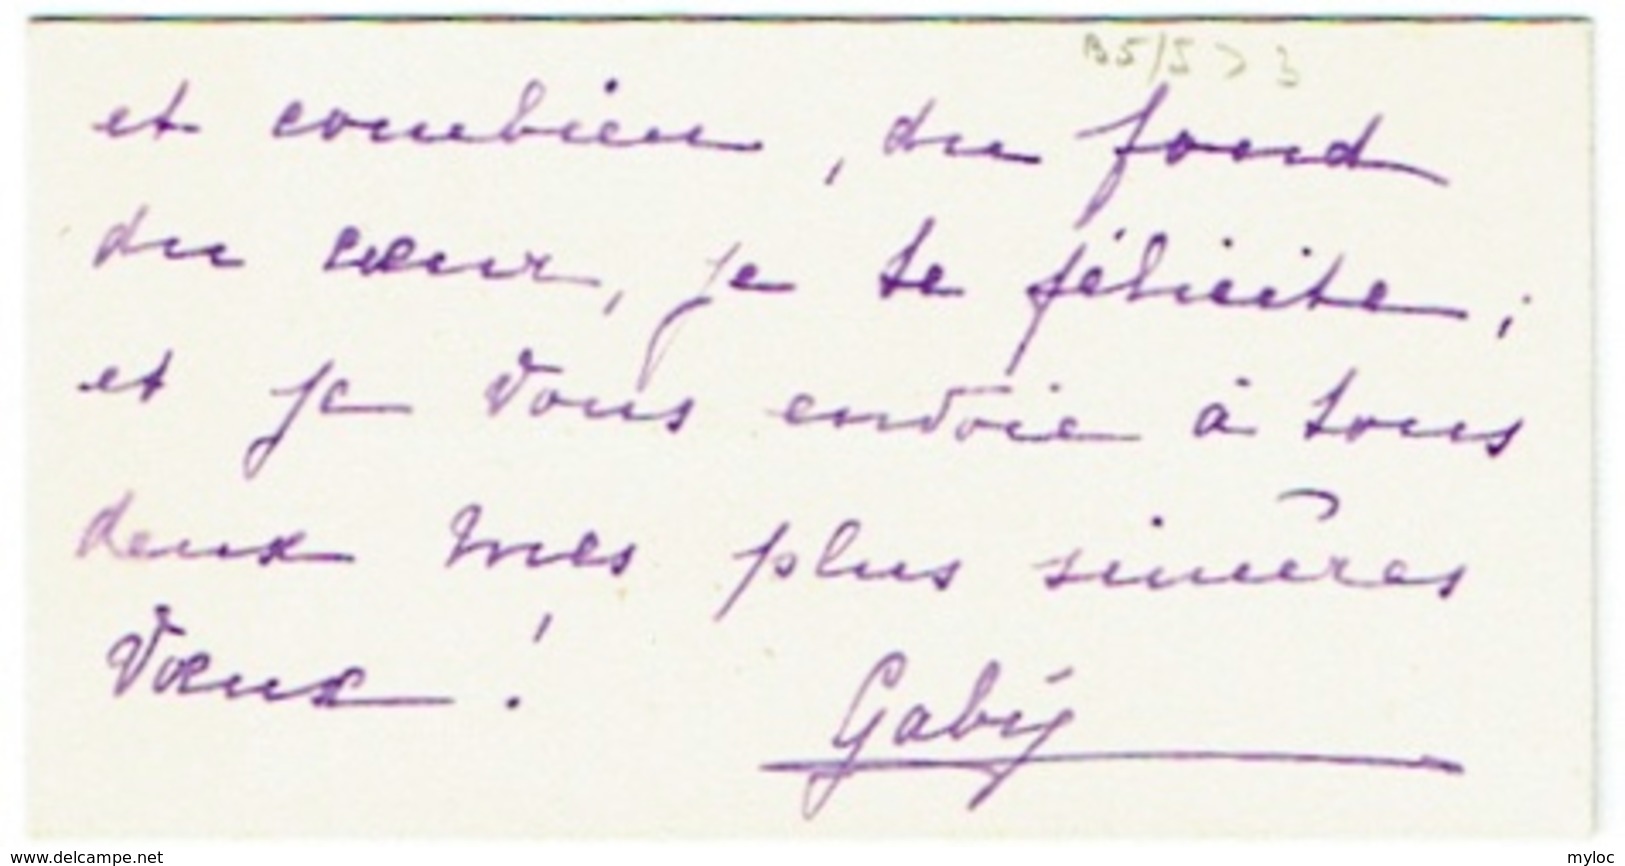 B5/5 > 3
et combien, du fond
du cœur, je te félicite,
et je vous envoie à tous
deux mes plus sincères
vœux !
Gaby
www.delcampe.net
myloc